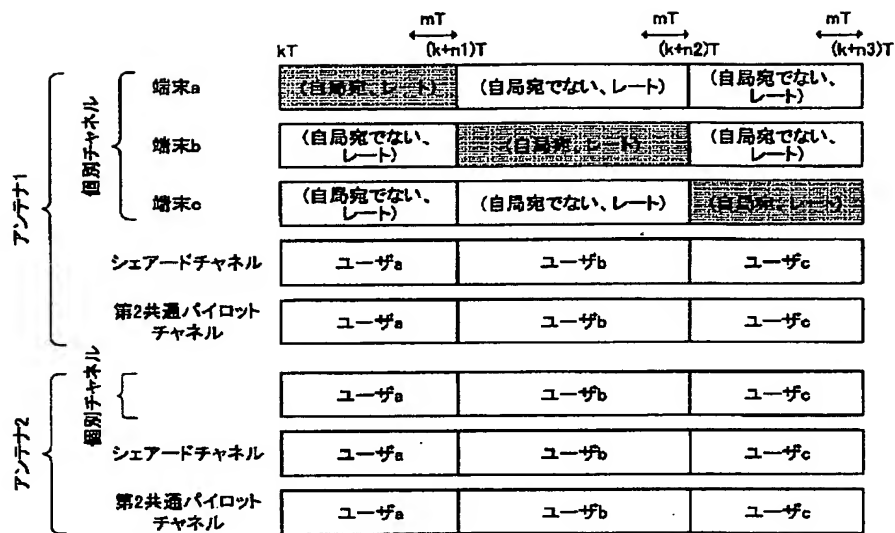 mT
mT
mT
kT
(k+n1)T
(k+n2)T
(k+n3)T
アンテナ1
個別チャネル
端末a
(自局宛、レート)
(自局宛でない、レート)
(自局宛でない、
レート)
端末b
(自局宛でない、
レート)
(自局宛、レート)
(自局宛でない、
レート)
端末c
(自局宛でない、
レート)
(自局宛でない、レート)
(自局宛、レート)
シェアードチャネル
ユーザa
ユーザb
ユーザc
第2共通パイロット
チャネル
ユーザa
ユーザb
ユーザc
アンテナ2
個別チャネル
ユーザa
ユーザb
ユーザc
シェアードチャネル
ユーザa
ユーザb
ユーザc
第2共通パイロット
チャネル
ユーザa
ユーザb
ユーザc